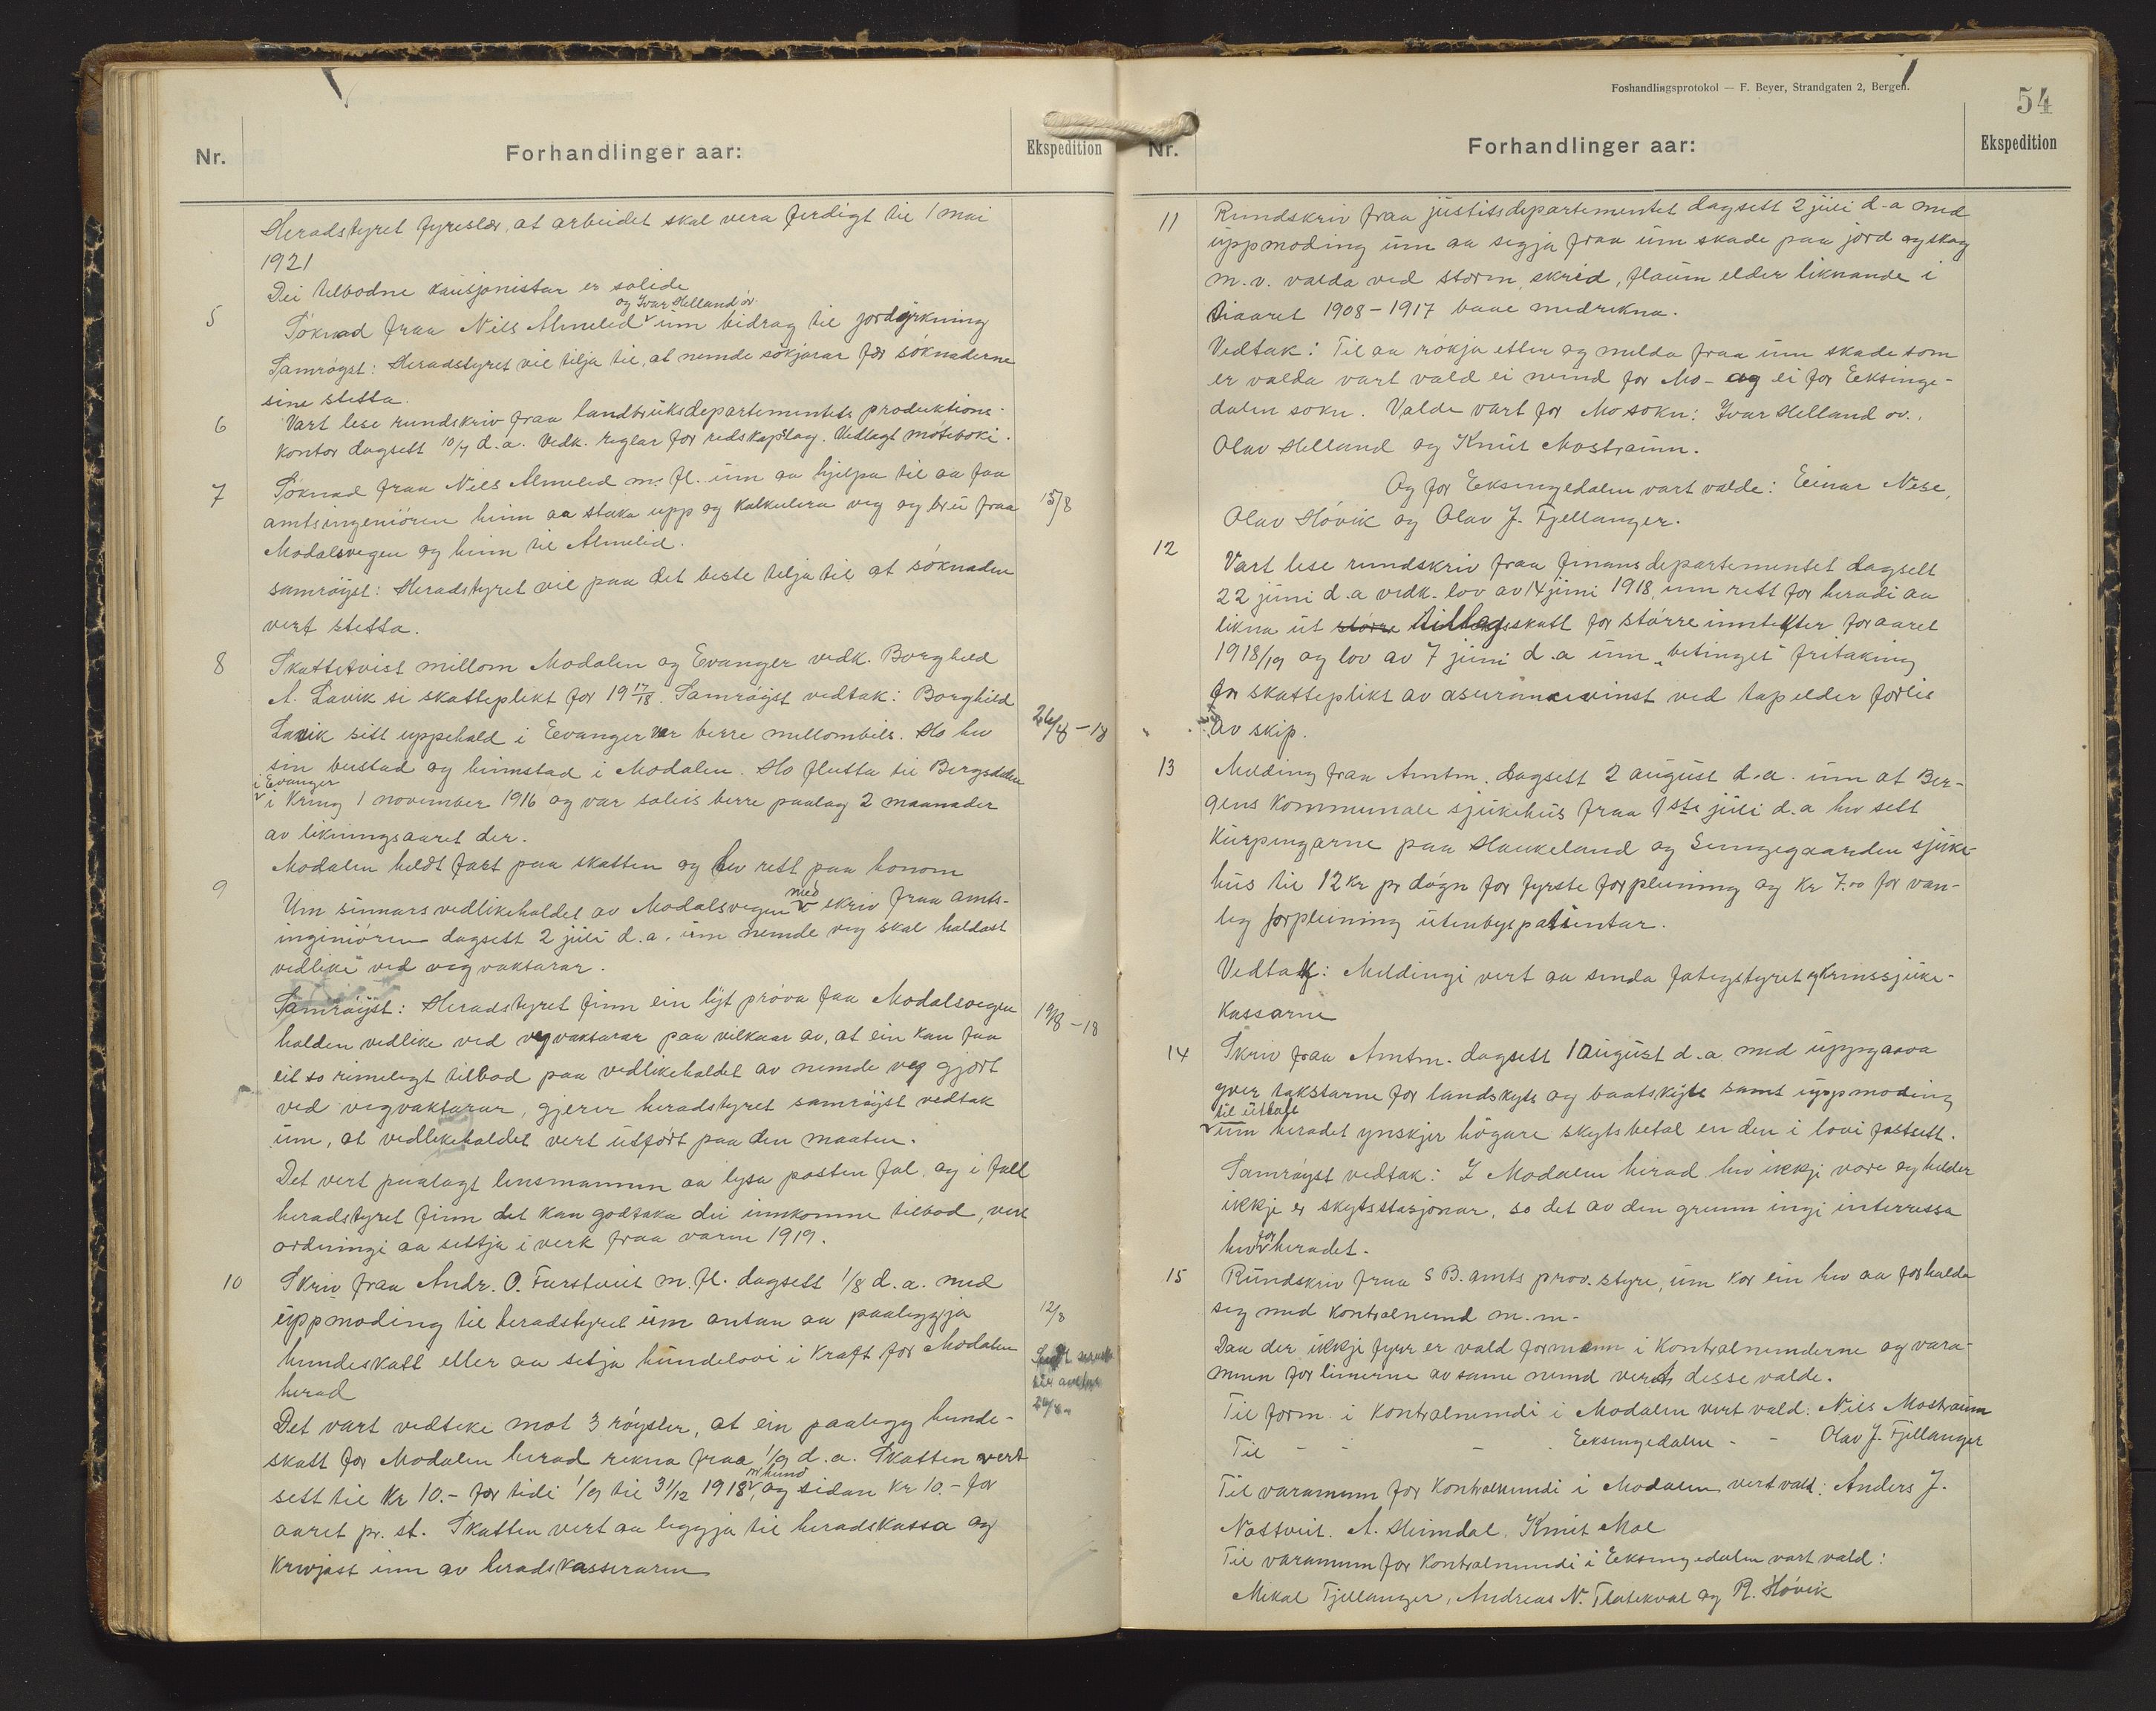 Nr.
Forhandlinger aar:
Ekspedition
Heradstyret fyreslær, at arbeidet skal vera ferdigt til 1 mai
1921
Dei tilbodne kausjonistar er solide
5
og Ivar Helland ov.
Söknad fraa Nils Almelid um bidrag til jorddyrkning
Samröyst: Heradstyret vil tilja til, at nemde sökjarar fær söknaderne
sine stetta.
6
Vart lese rundskriv fraa landbruksdepartementets produktions-
kontor dagsett 10/7 d.a. vedk. reglar for redskaplag. Vedlagt möteboki.
7
Söknad fraa Nils Almelid m. fl. um aa hjelpa til aa faa
amtsingeniören him aa staka upp og kalkulera veg og bru fraa
15/8
Modalsvegen og heim til Almelid.
samröyst: Heradstyret vil paa det beste tilja til at söknaden
vert stetta.
8
Skattetvist millom Modalen og Evanger vedk. Borghild
A. Lavik si skatteplikt for 19 17/18. Samröyst vedtak: Borghild
Lavik sitt uppehald i Evanger var berre millombils. Ho hev
26/8 - 18
sin bustad og heimstad i Modalen. Ho flutta til Bergsdalen
i Evanger
i kring 1 november 1916 og var soleis berre paalag 2 maanader
av likningsaaret der.
Modalen heldt fast paa skatten og hev rett paa honom
9
Um sumars vedlikehaldet av Modalsvegen med skriv fraa amts-
inginiören dagsett 2 juli d.a. um nemde veg skal haldast
vedlike ved vegvaktarar.
Samröyst: Heradstyret finn ein lyt pröva faa Modalsvegen
19/8 - 18
halden vedlike ved vegvaktarar paa vilkaar av, at ein kan faa
eit so rimelegt tilbod paa vedlikehaldet av nemde veg gjort
ved vegvaktarar, gjerer heradstyret samröyst vedtak
um, at vedlikehaldet vert utfört paa den maaten.
Det vert paalagt lensmannen aa lysa posten fal og i fall
heradstyret finn det kan godtaka dei innkomne tilbod, vert
ordningi aa settja i verk fraa varen 1919.
10
Skriv fraa Andr. O. Farstveit m. fl. dagsett 1/8 d.a. med
uppmoding til heradstyret um antan aa paaleggja
12/8
hundeskatt eller aa setja hundelovi i kraft for Modalen
herad
Det vart vedteke mot 3 röyster, at ein paalegg hunde-
skatt for Modalen herad rekna fraa 1/9 d.a. Skatten vert
sett til kr 10.- for tidi 1/9 til 31/12 1918 pr hund, og sidan kr 10.- for
aaret pr. st. Skatten vert aa leggja til heradskassa og
krevjast inn av heradskasseraren
Foshandlingsprotokol — F. Beyer, Strandgaten 2, Bergen.
54
Nr.
Forhandlinger aar:
Ekspedition
11
Rundskriv fraa justitsdepartementet dagsett 2 juli d.a med
uppmoding um aa segja fraa um skade paa jord og skog
m.v. valda ved storm, skrid, flaum elder liknande i
tiaaret 1908 - 1917 baae medrekna.
Vedtak: Til aa rökja etter og melda fraa um skade som
er valda vart vald ei nemnd for Mo- og ei for Eeksinge-
dalen sokn. Valde vart for Mo sokn: Ivar Helland ov.,
Olav Helland og Knut Mostraum.
Og for Eeksingedalen vart valde: Einar Nese,
Olav Hövik og Olav J. Fjellanger.
12
Vart lese rundskriv fraa finansdepartementet dagsett
22 juni d.a vedk. lov av 14 juni 1918, um rett for heradi aa
likna ut större tillagsskatt for större inntekter for aaret
1918/19 og lov av 7 juni d.a um "betinget" fritaking
for skatteplikt av asurancevinst ved tap elder forlis
av skip.
13
Melding fraa Amtm. dagsett 2 august d.a. um at Ber-
gens kommunale sjukehus fraa 1ste juli d.a hev sett
kurpengarne paa Haukeland og Sengegaarden sjuke-
hus til 12 kr pr dögn for fyrste forpleining og kr 7.00 for van-
leg forpleining utenbyspatientar.
Vedtak: Meldingi vert aa senda fategstyret og krinssjuke-
kassarne
14
Skriv fraa Amtm. dagsett 1 august d.a med uppgaava
yver takstarne for landskyts og baatskyts samt uppmoding
til uttale
um heradet ynskjer högare skytsbetal en den i lovi fastsett.
Samröyst vedtak: I Modalen herad hev ikkje vore og helder
ikkje er skytsstasjonar, so det av den grunn ingi interressa
hev for heradet.
15
Rundskriv fraa S B. amts prov. styre, um kor ein hev aa forhalda
seg med kontrolnemd m.m.
Daa der ikkje fyrr er vald formann i kontrolnemderne og vara-
menn for limerne av same nemd vert desse valde.
Til form. i kontrolnemdi i Modalen vert vald: Nils Mostraum
Til - - - Eeksingedalen - - Olav J. Fjellanger
Til varamenn for kontrolnemdi i Modalen vert vald: Anders J.
Nottveit. A. Heimdal. Knut Moe
Til varamenn for kontrolnemdi i Eeksingedalen vart vald:
Mikal Fjellanger, Andreas N. Flatekval og R. Hövik